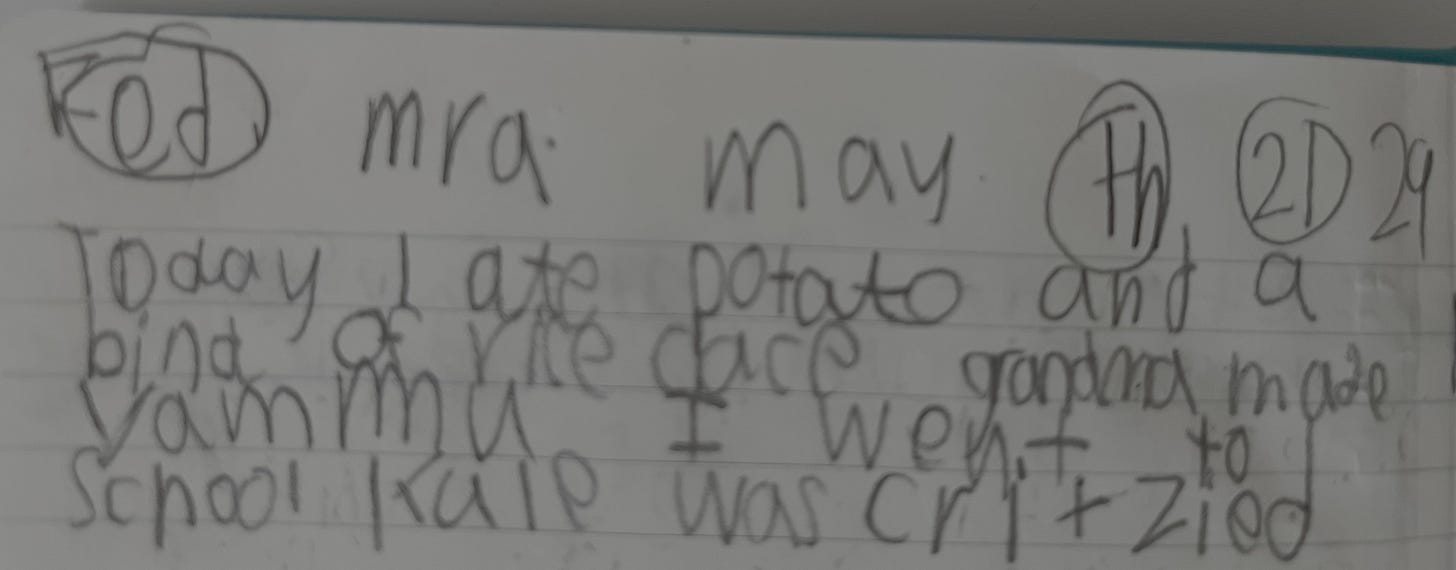 Fod mra. may. Th 2D 29
Today I ate potato and a
bind of rice dace grandma made
Vammu I went to
School Kale was cri+zied